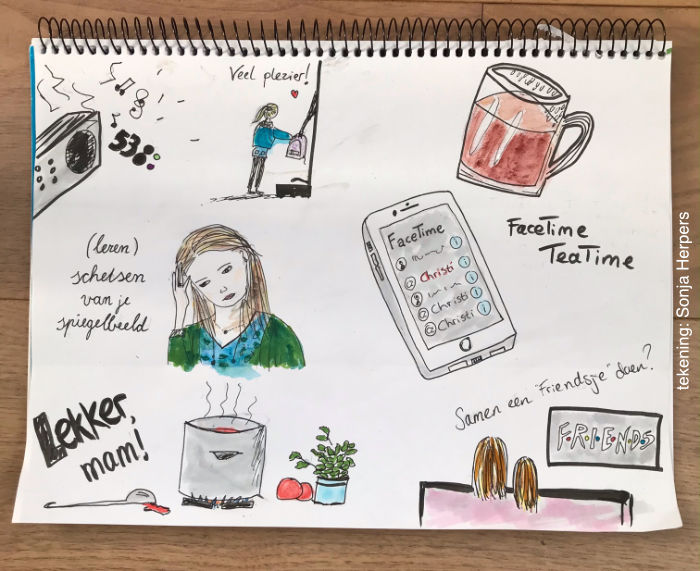 Veel plezier!
538
FaceTime
TeaTime
(leren)
schetsen
van je
spiegelbeeld
FaceTime
Christi
Christi
Christi
Lekker,
mam!
Samen een "Friendsje" doen?
F•R•I•E•N•D•S
tekening: Sonja Herpers